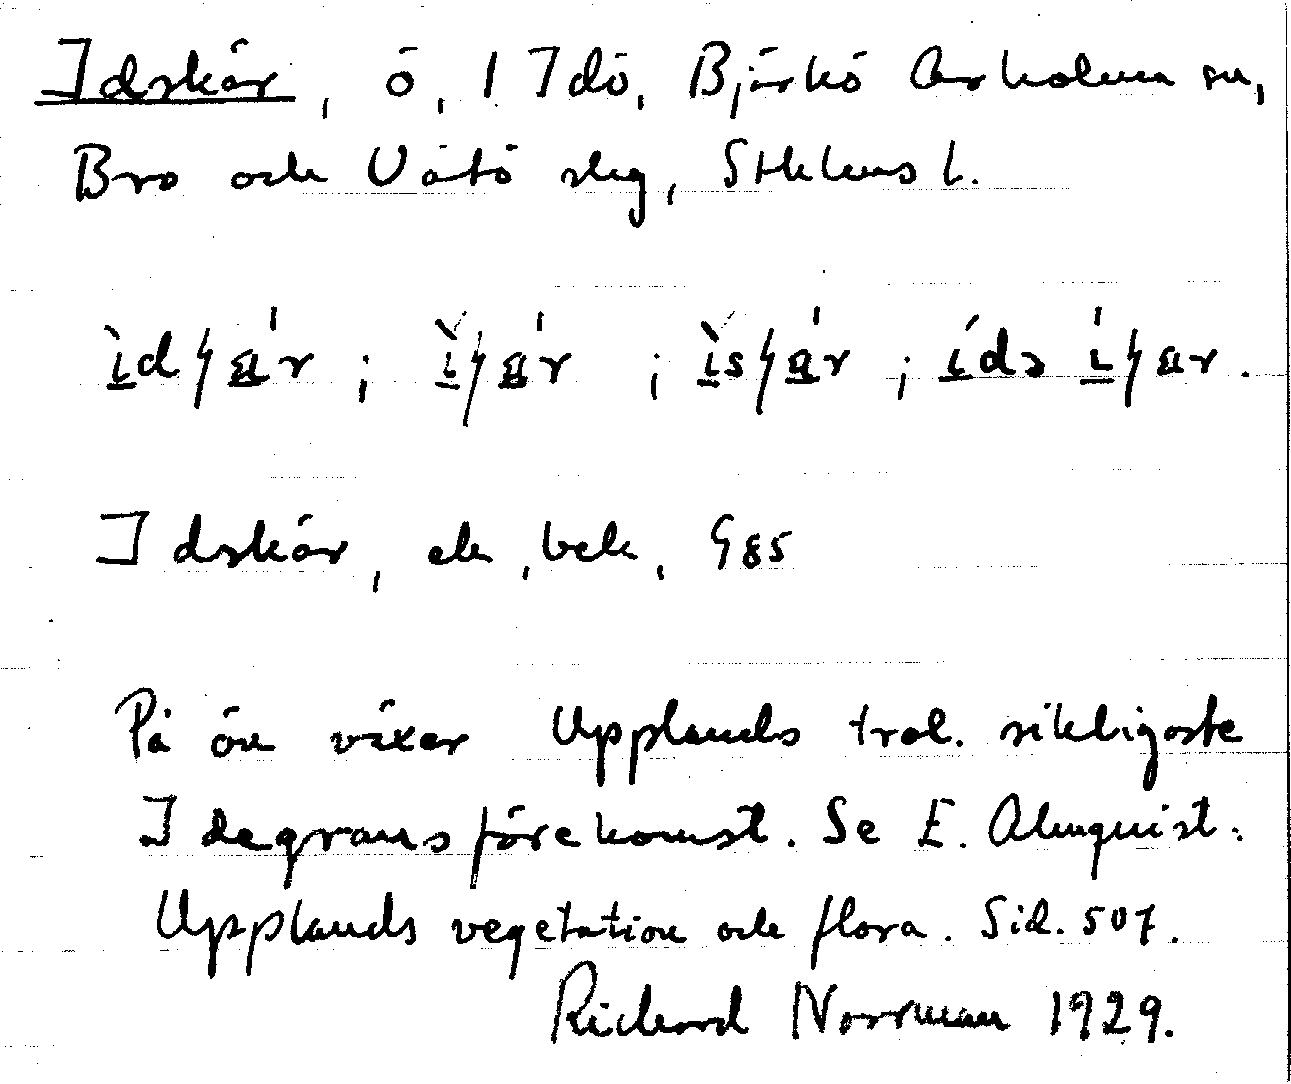 Idskär, ö, 1 Idö, Björkö Arholma sn,
Bro och Vätö slg, Sthlms l.
Idskär, ek, bek, G85
På ön växer Upplands trol. rikligaste
Idegransförekomst. Se E. Almquist:
Upplands vegetation och flora. Sid. 507.
Richard Norrman 1929.